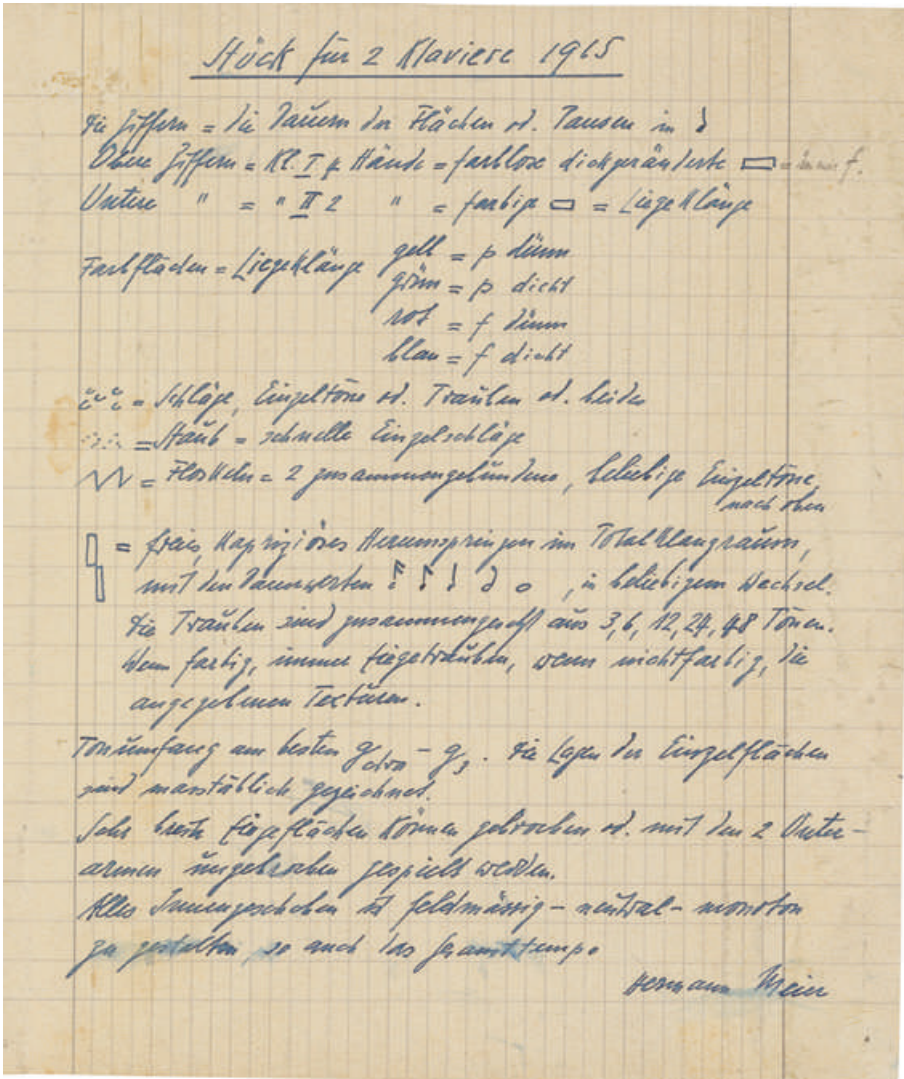 Stück für 2 Klaviere 1965
Die Ziffern = die Dauern der Flächen od. Pausen in
Obere Ziffern = Kl. I 4 Hände = farblose dickgeränderte ▭ = immer f.
Untere " = " II 2 " = farbige ▭ = Liegeklänge
Farbflächen = Liegeklänge gelb = p dünn
grün = p dicht
rot = f dünn
blau = f dicht
= Schläge, Einzeltöne od. Trauben od. beides
= Staub = schnelle Einzelschläge
= Floskeln = 2 zusammengebundene, beliebige Einzeltöne,
nach oben
= freies, kapriziöses Herumspringen im Totalklangraum,
mit den Dauerwerten , in beliebigem Wechsel.
Die Trauben sind zusammengesetzt aus 3, 6, 12, 24, 48 Tönen.
Wenn farbig, immer Liegetrauben, wenn nichtfarbig, die
angegebenen Texturen.
Tonumfang am besten g – g3. Die Lagen der Einzelflächen
sind masstäblich gezeichnet.
Sehr breite Liegeflächen können gebrochen od. mit den 2 Unter-
armen ungebrochen gespielt werden.
Alles Innengeschehen ist feldmässig – neutral – monoton
zu gestalten, so auch das Gesamttempo
Hermann Meier